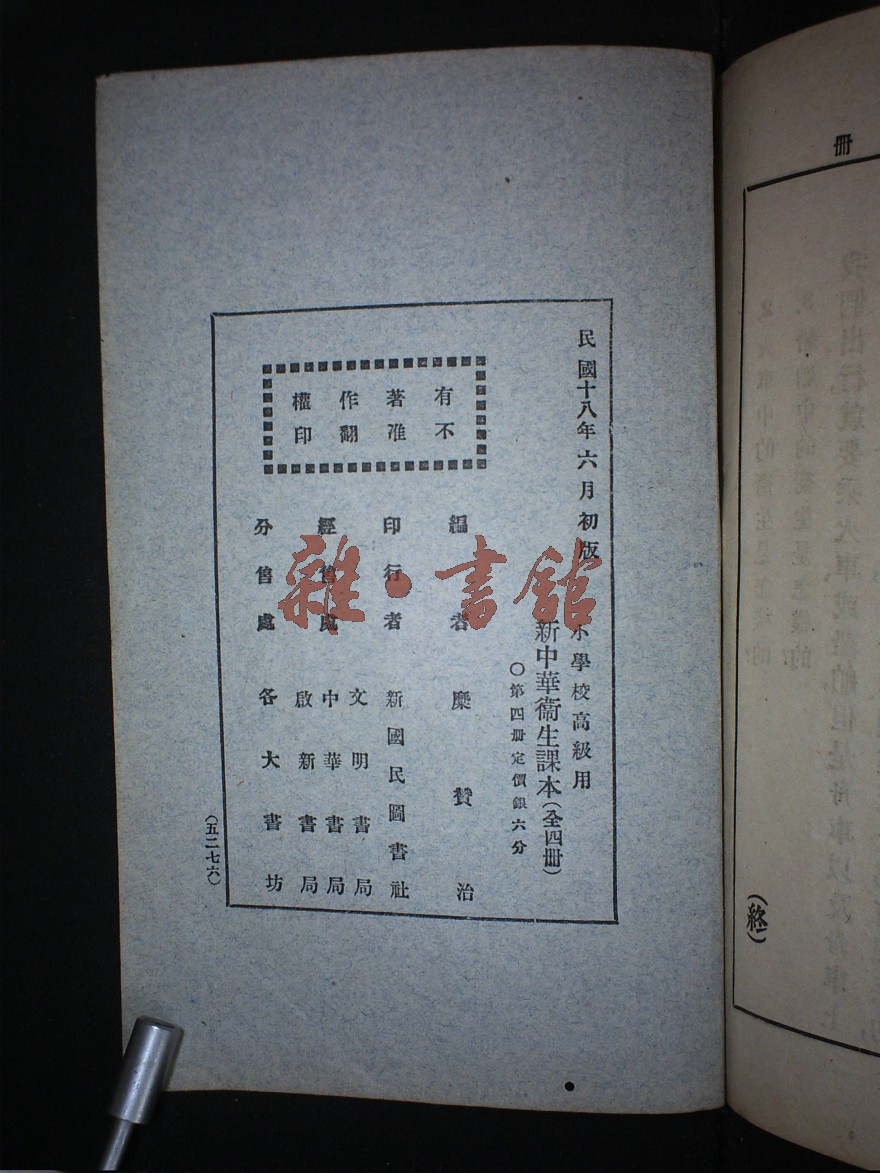 民國十八年六月初版
小學校高級用
新中華衞生課本（全四册）
〇第四册定價銀六分
有不
著准
作翻
權印
編者 糜贊治
印行者 新國民圖書社
經售處 文明書局
中華書局
啟新書局
分售處 各大書坊
（五二七六）
雜·書館
册
（終）